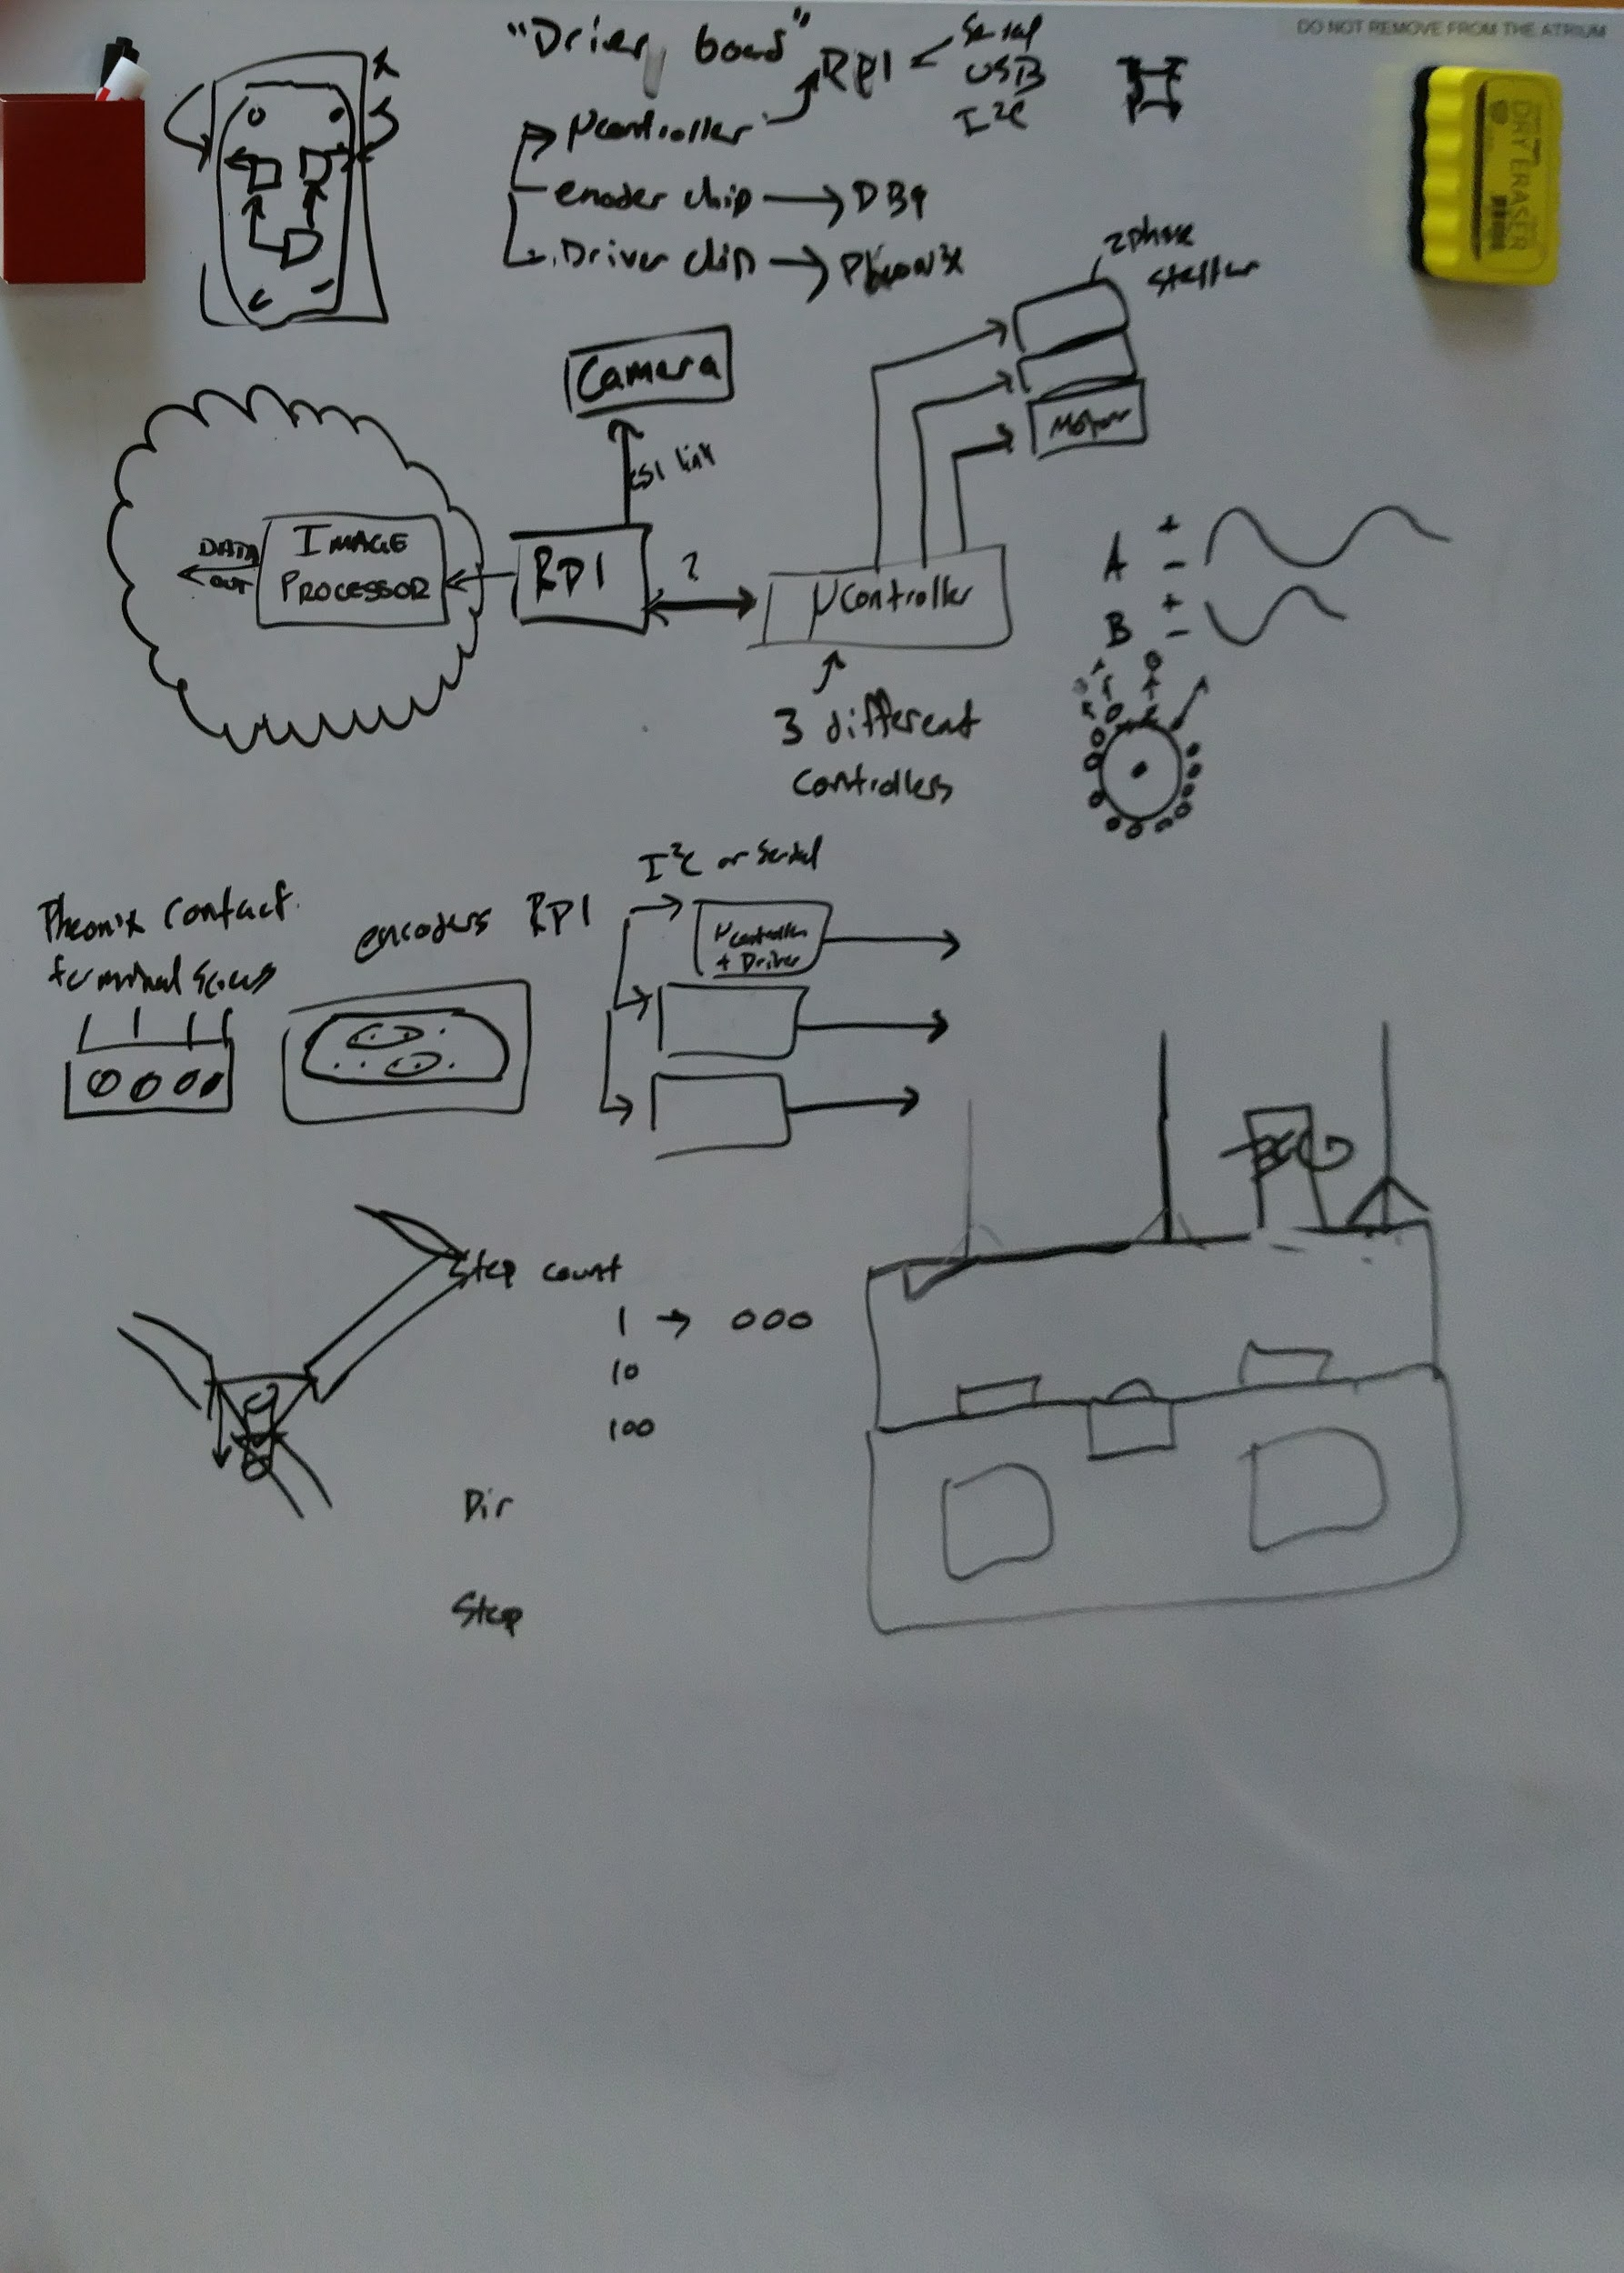 DO NOT REMOVE FROM THE ATRIUM
DRY ERASER
"Driver board"
RPI
Serial
USB
I²C
μcontroller
enoder chip → DB9
Driver chip → Pheonix
2 phase
stepper
Camera
CSI link
Motor
DATA
OUT
IMAGE
PROCESSOR
RPI
?
μController
A + -
B + -
3 different
controllers
I²C or Serial
Pheonix contact
terminal screws
encoders
RPI
μcontroller
+ Driver
Step count
1 → 000
10
100
Dir
Step